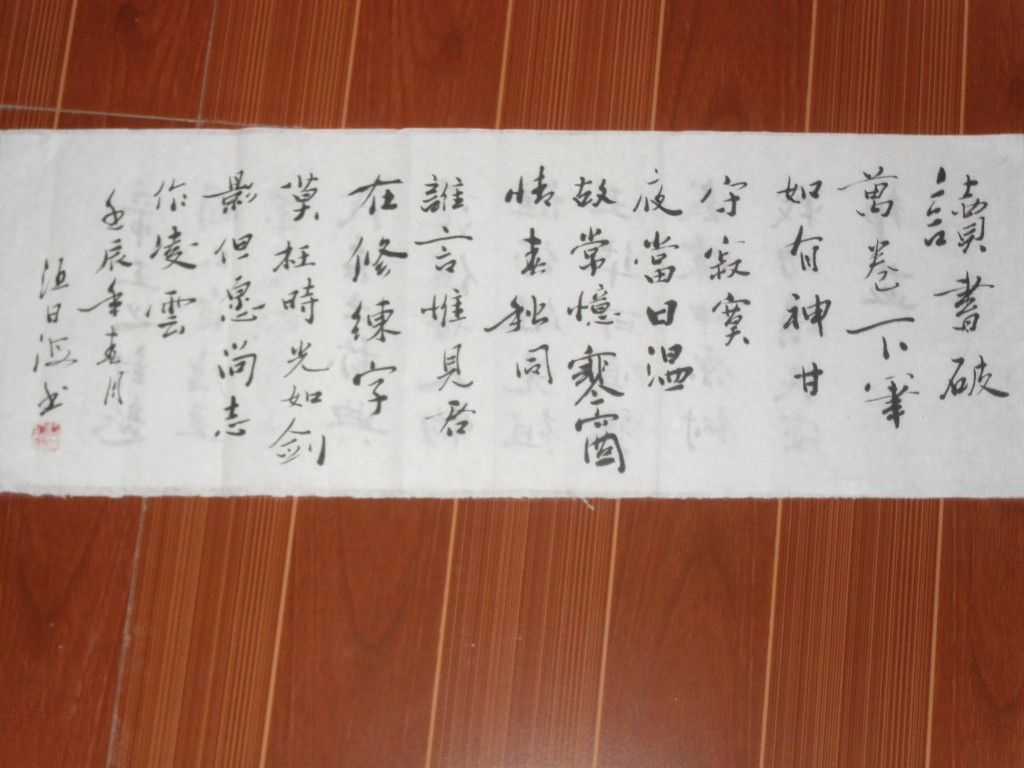 讀書破
萬卷下筆
如有神甘
守寂寞
夜當日溫
故常憶寒窗
情春秋同
誰言惟見君
在修練字
莫枉時光如劍
影但愿尚志
作凌雲
壬辰年春月
日海书